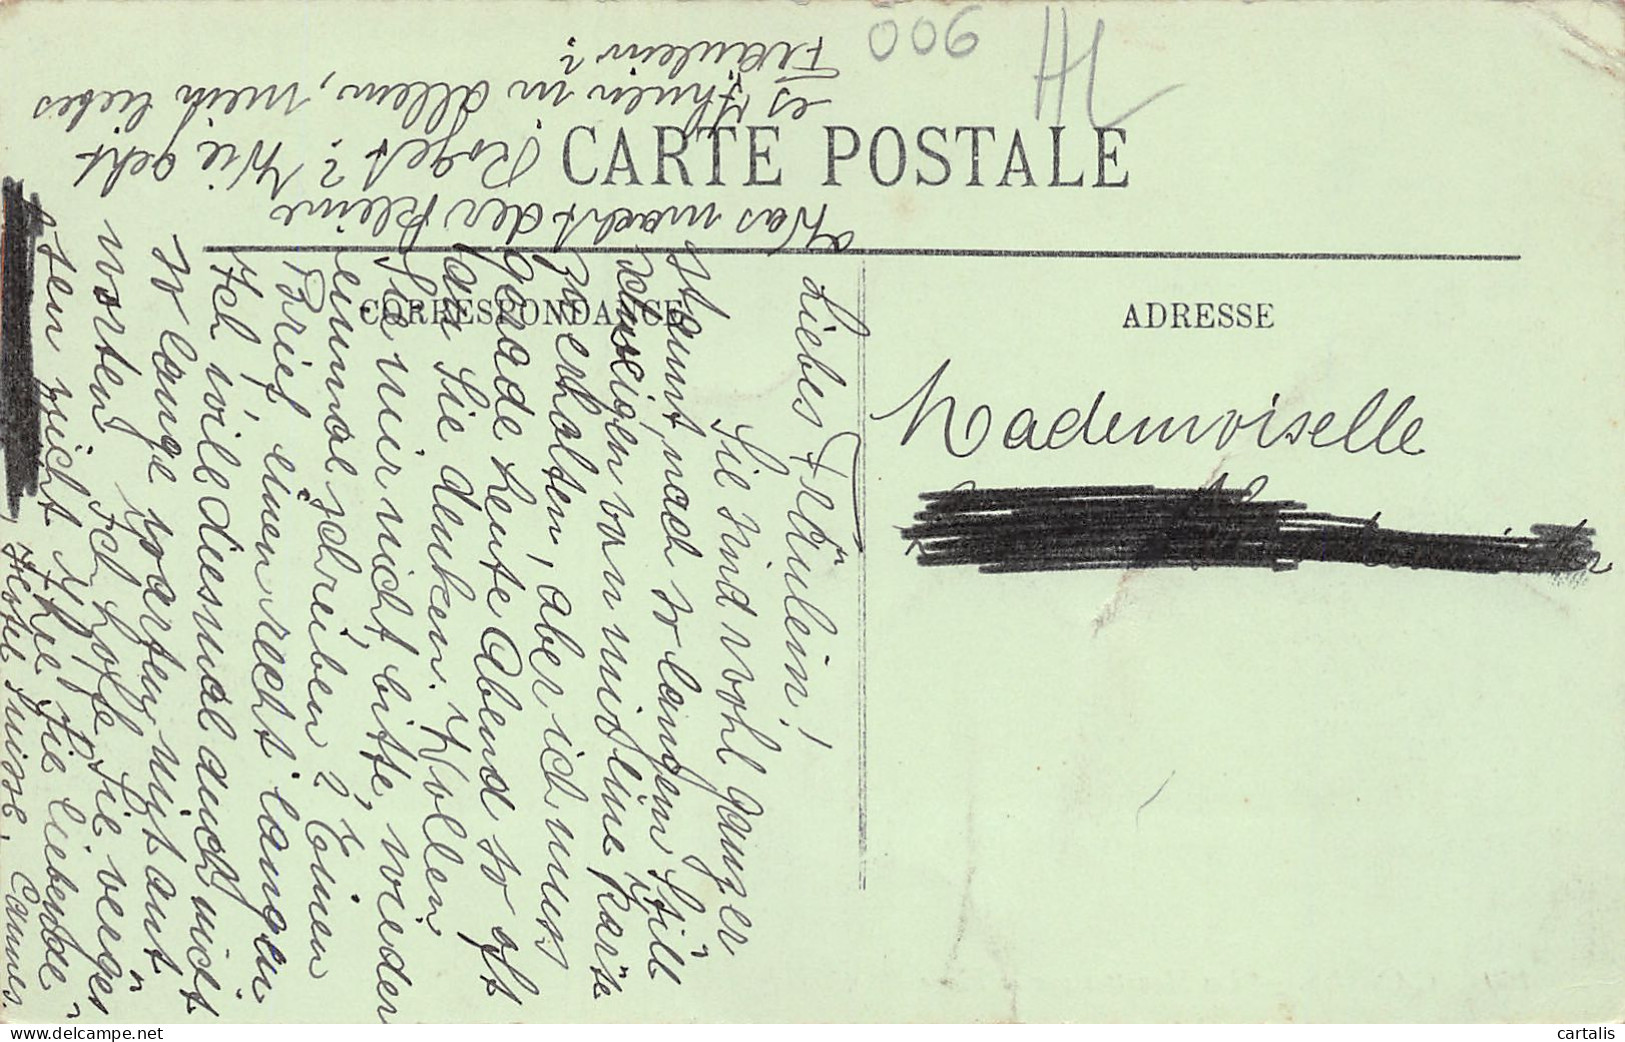 006
HL
CARTE POSTALE
CORRESPONDANCE
ADRESSE
Mademoiselle
Liebes Fräulein!
Sie sind wohl ganz er
staunt, nach so langem Still
schweigen von mir eine Karte
zu erhalten, aber ich muss
gerade heute Abend so oft
an Sie denken. Wollen
Sie mir nicht, bitte, wieder
einmal schreiben? Einen
Brief, einen recht langen
Ich will diesmal auch nicht
so lange warten mit ant
worten. Ich hoffe Sie verges
sen nicht Ihre Sie liebende
Hotel Suisse. Cannes.
Was macht der kleine
Roger? Wie geht
es Ihnen in allem, mein liebes
Fräulein?
cartalis